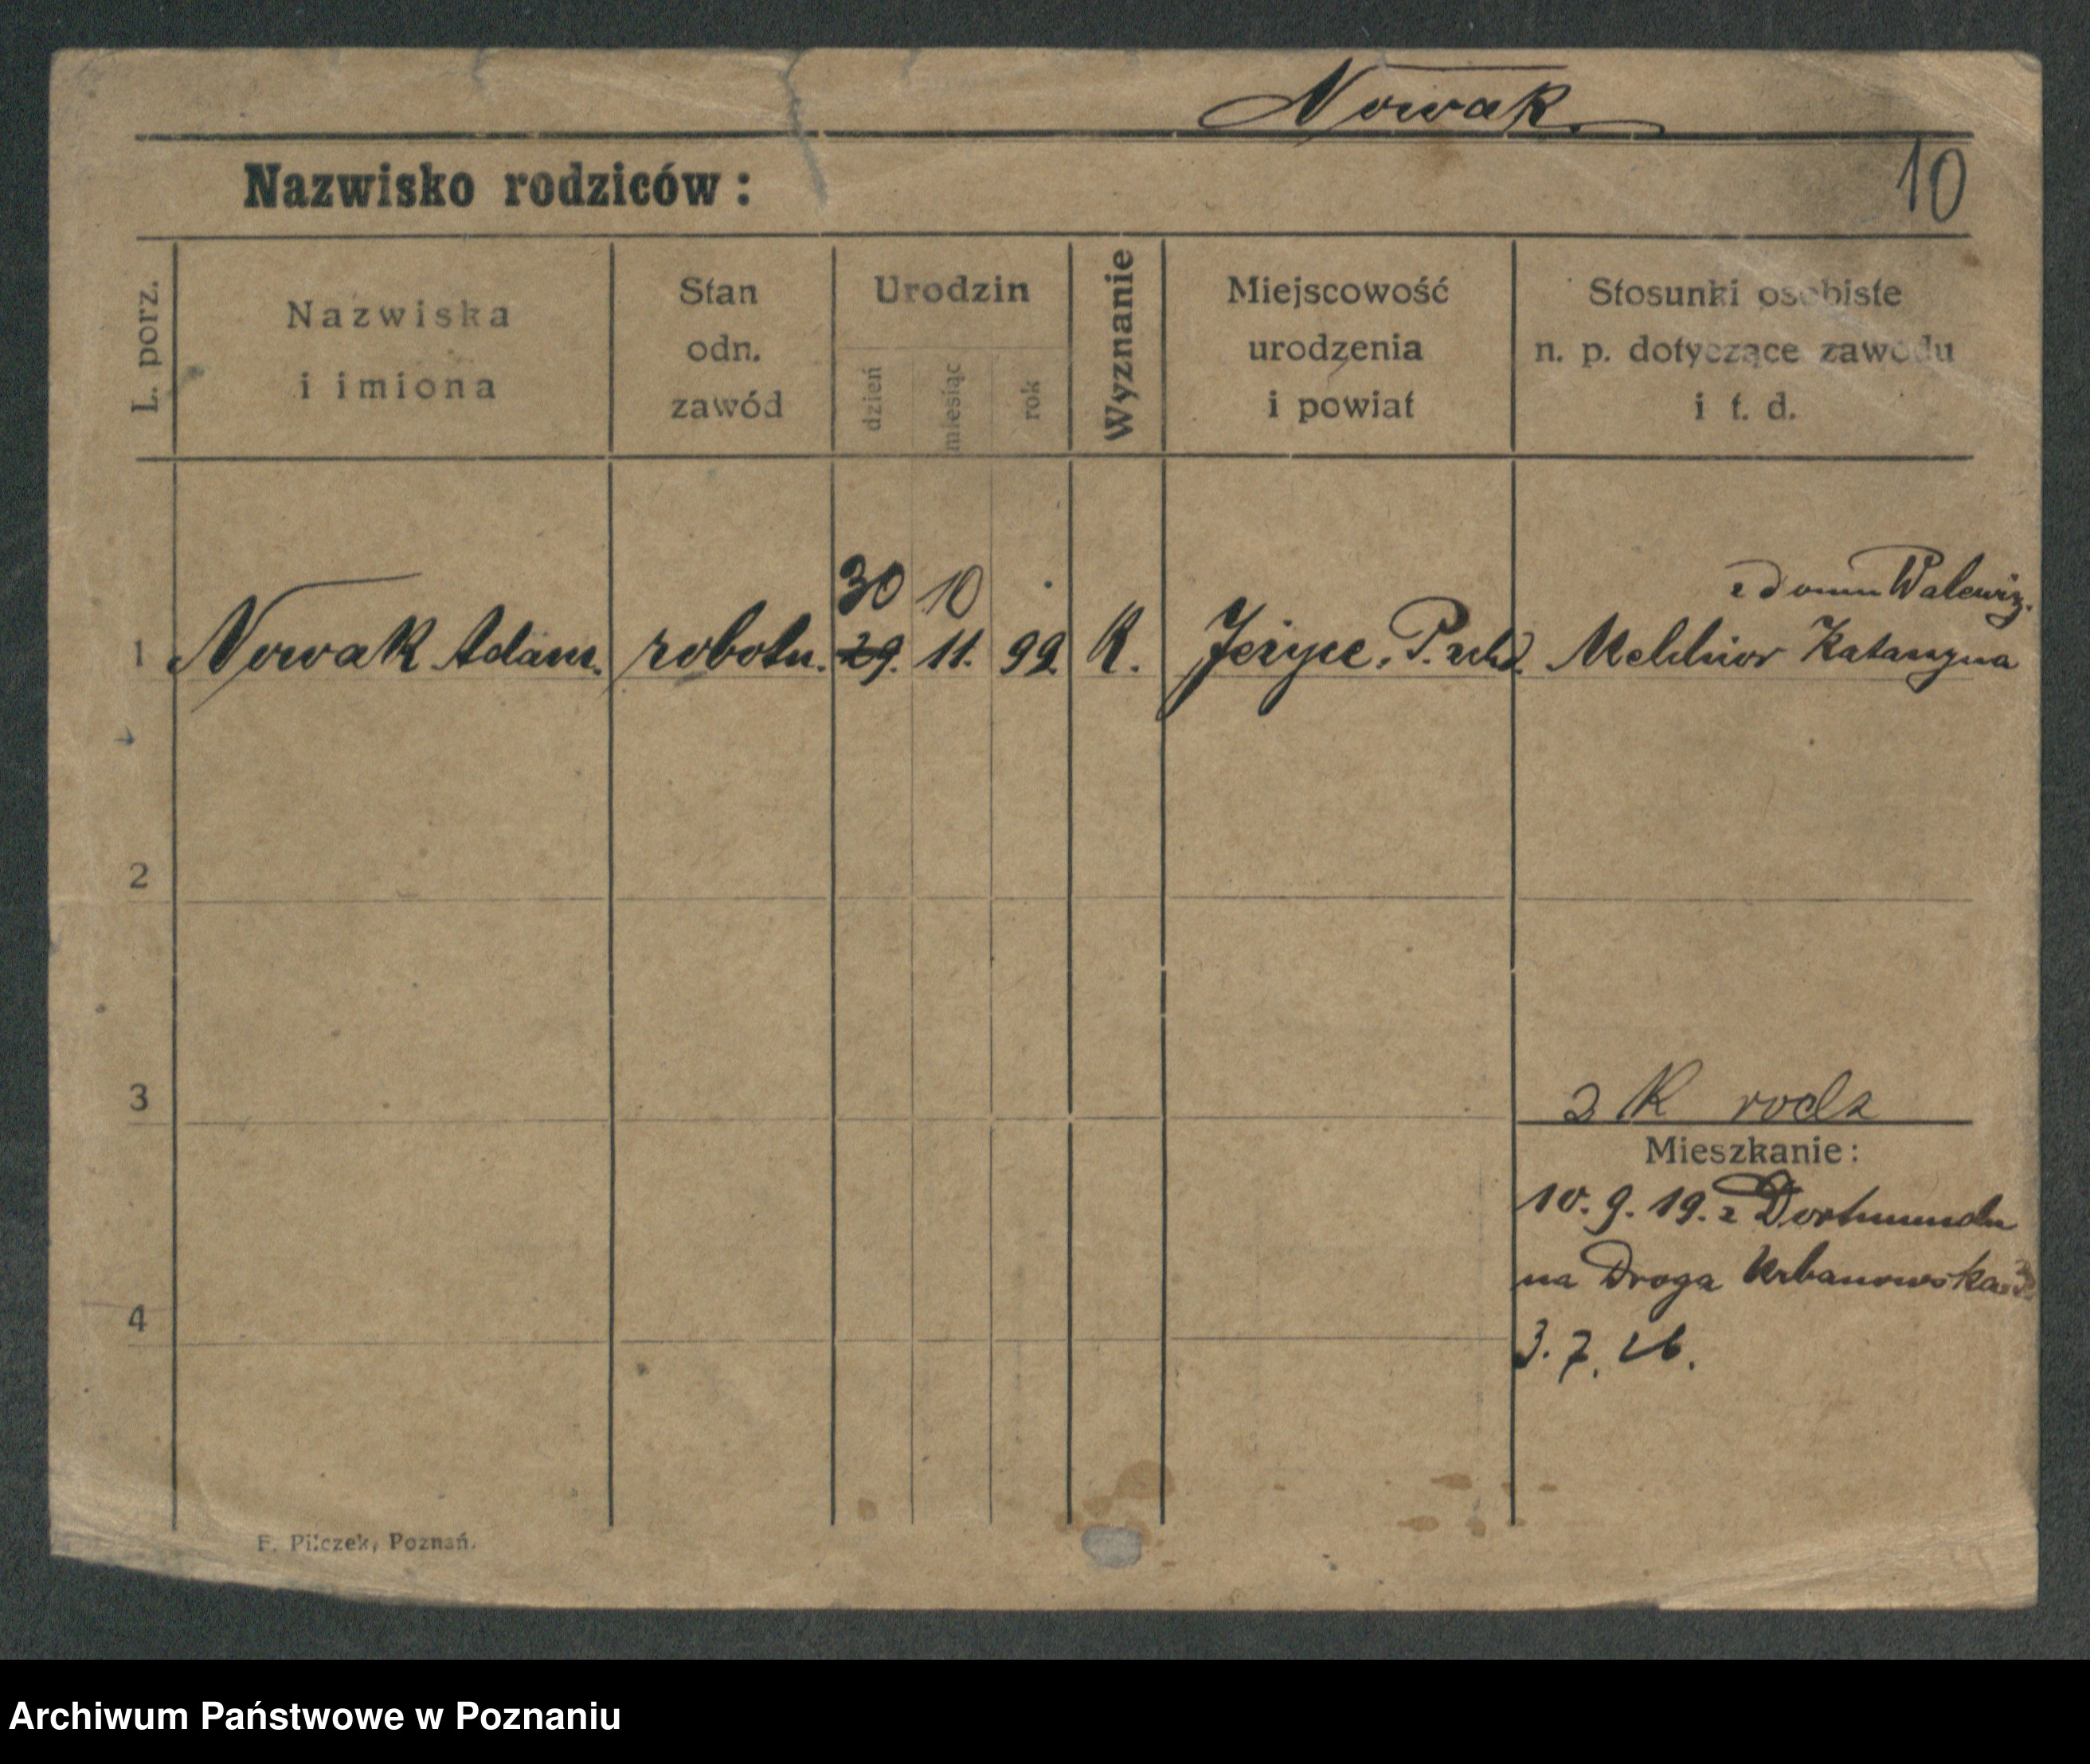 Nowak
Nazwisko rodziców :
10
L. porz.
Nazwiska
i imiona
Stan
odn.
zawód
Urodzin
dzień
miesiąc
rok
Wyznanie
Miejscowość
urodzenia
i powiat
Stosunki osobiste
n. p. dotyczące zawodu
i t. d.
30 10
z domu Walewicz.
1 Nowak Adam. robotn. 29. 11. 99. K. Jeżyce, P. Melchior Katarzyna
2
3
2 K rodz
Mieszkanie :
10. 9. 19. z Dortmundu
na Droga Urbanowska
4
3. 7. 26.
F. Pilczek, Poznań.
Archiwum Państwowe w Poznaniu